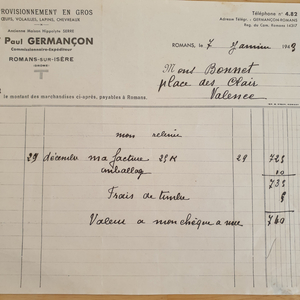 PROVISIONNEMENT EN GROS
ŒUFS, VOLAILLES, LAPINS, CHEVREAUX
Ancienne Maison Hippolyte SERRE
Paul GERMANÇON
Commissionnaire-Expéditeur
ROMANS-SUR-ISÈRE
(DROME)
Téléphone n° 4.82
Adresse Télégr. : GERMANÇON-ROMANS
Reg. du Com. Romans
ROMANS, le 7 Janvier 19
Mons Bonnet
place des Clair
Valence
le montant des marchandises ci-après, payables à Romans.
mon relevé
29 décembre ma facture 25 K 29 725
emballag 10
735
Frais de timbre 5
Valeur a mon chèque a vue 740